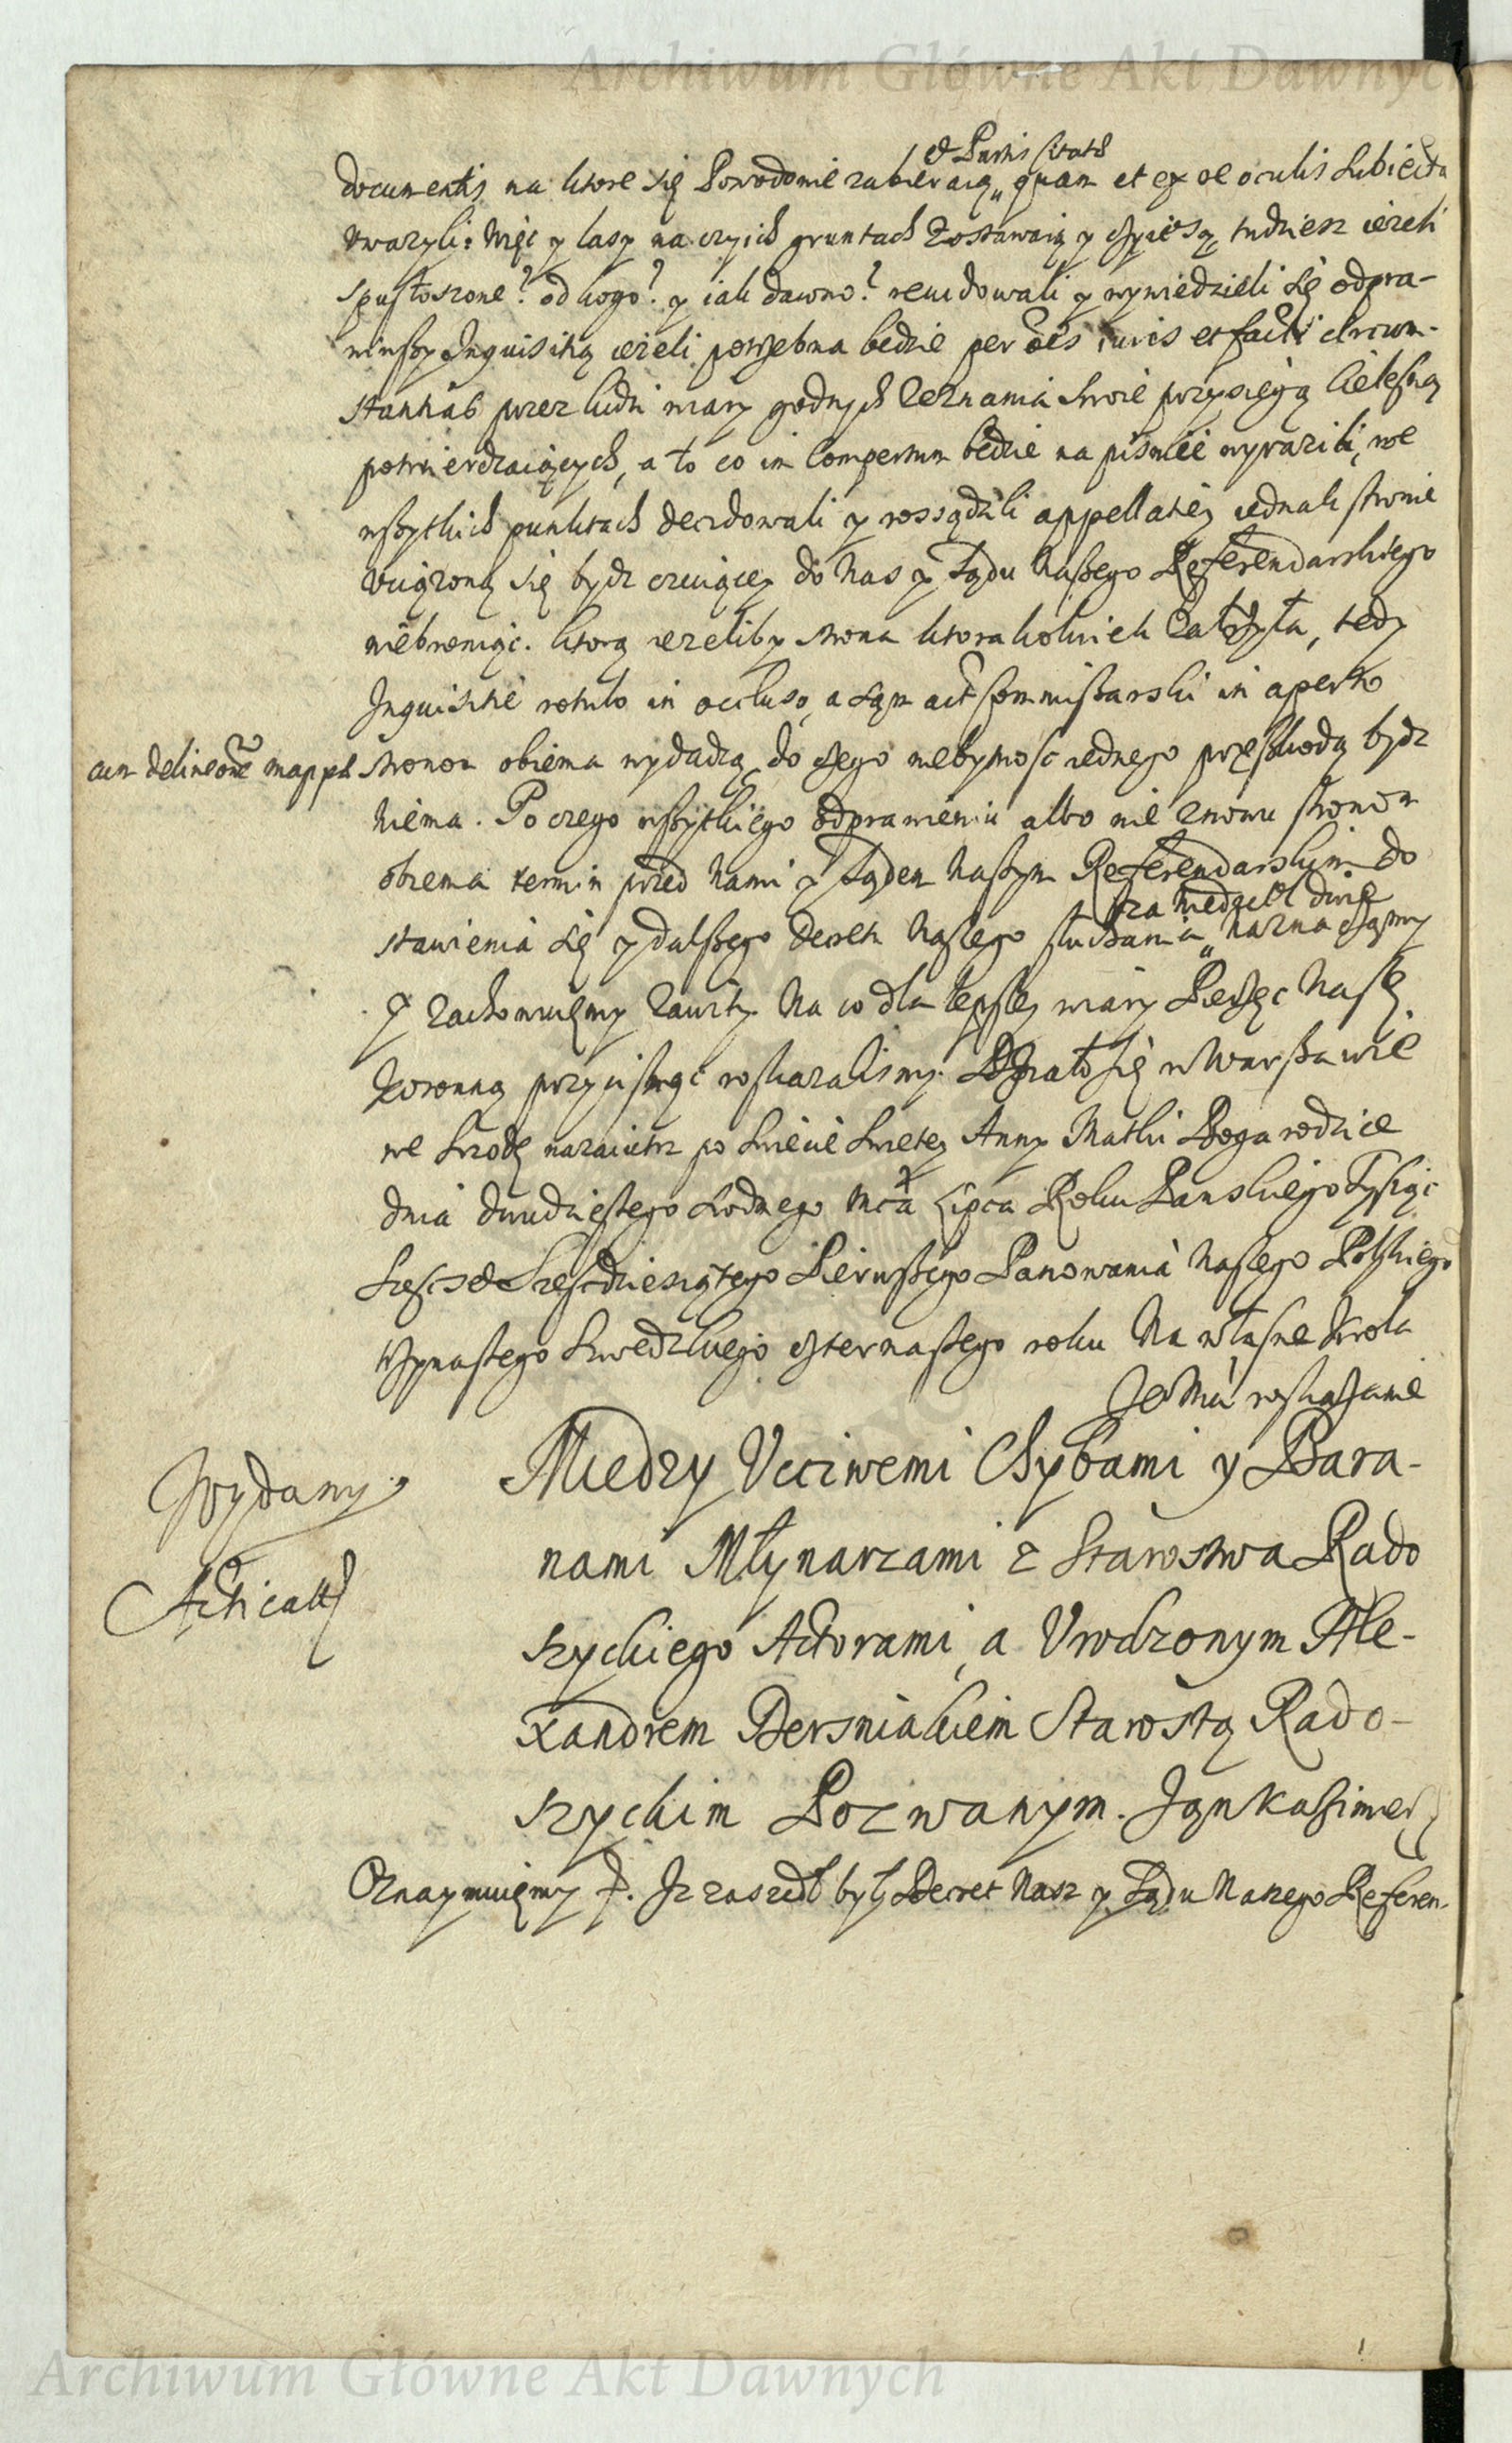 Archiwum Główne Akt Dawnych
et Partis Citatae
documentis na ktore się Powodowie zabieraią, quam et ex oe oculis subiecta
uwazyli: Więc y lasy na czyich gruntach zostawaią y czyie są, tudziesz iezeli
spustoszone? od kogo? y iak dawno? rewidowali y wywiedzieli się odpra-
wiwszy Inquisitią iezeli potrzebna bedzie per oēs iuris et facti circum-
stantias przez ludzi wiary godnych zeznania swoie przysięgą cielesną
potwierdzaiących, a to co in compertum bedzie na pismie wyrazili, we
wszytkich punktach decidowali y rossądzili appellatiey iednak stronie
uciązoną się bydz czuiącey do Nas y Sądu Naszego Referendarskiego
niebroniąc. ktorą iezeliby strona ktorakolwiek załozyła, tedy
Inquisitie rotulo in occluso, a sąm act Commissarski in aperto
cum delineone mappae stronom obiema wydadzą, do czego niebytnosc iednego przeszkodą bydz
niema. Po czego wszytkiego odprawieniu albo nie znowu stronom
obiema termin przed Nami y Sądem Naszym Referendarskim do
za niedziel dwie
stawienia się y dalszego Decretu Naszego słuchania naznaczamy
y zachowuiemy zawity. Na co dla lepszey wiary Pieczęc Naszę
Koronną przycisnąc roskazalismy. Dział się w Warszawie
we Srodę nazaiutrz po Swiecie Swietey Anny Matki Bogarodzice
dnia dwudziestego siodmego Mca Lipca Roku Panskiego Tysiąc
Szescset Szescdziesiątego Pierwszego Panowania Naszego Polskiego
trzynastego Szwedzkiego czternastego roku Na własne Krola
Je Mci roskazanie
Wydany.
Miedzy Ucciwemi Chybami y Bara-
nami Młynarzami z Starostwa Rado
Acticat
szyckiego Actorami, a Urodzonym Ale-
xandrem Bersniakiem Starostą Rado-
szyckim Pozwanym. Jan Kazimierz
Oznaymuiemy p. Iz zaszedł był Decret Nasz y Sądu Naszego Referen-
Archiwum Główne Akt Dawnych